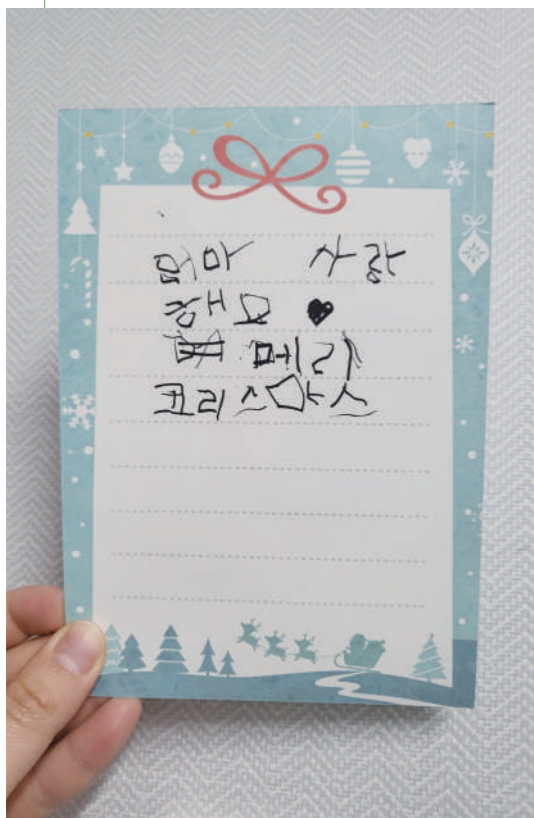 엄마 사랑
해요 ♥
메리
크리스마스